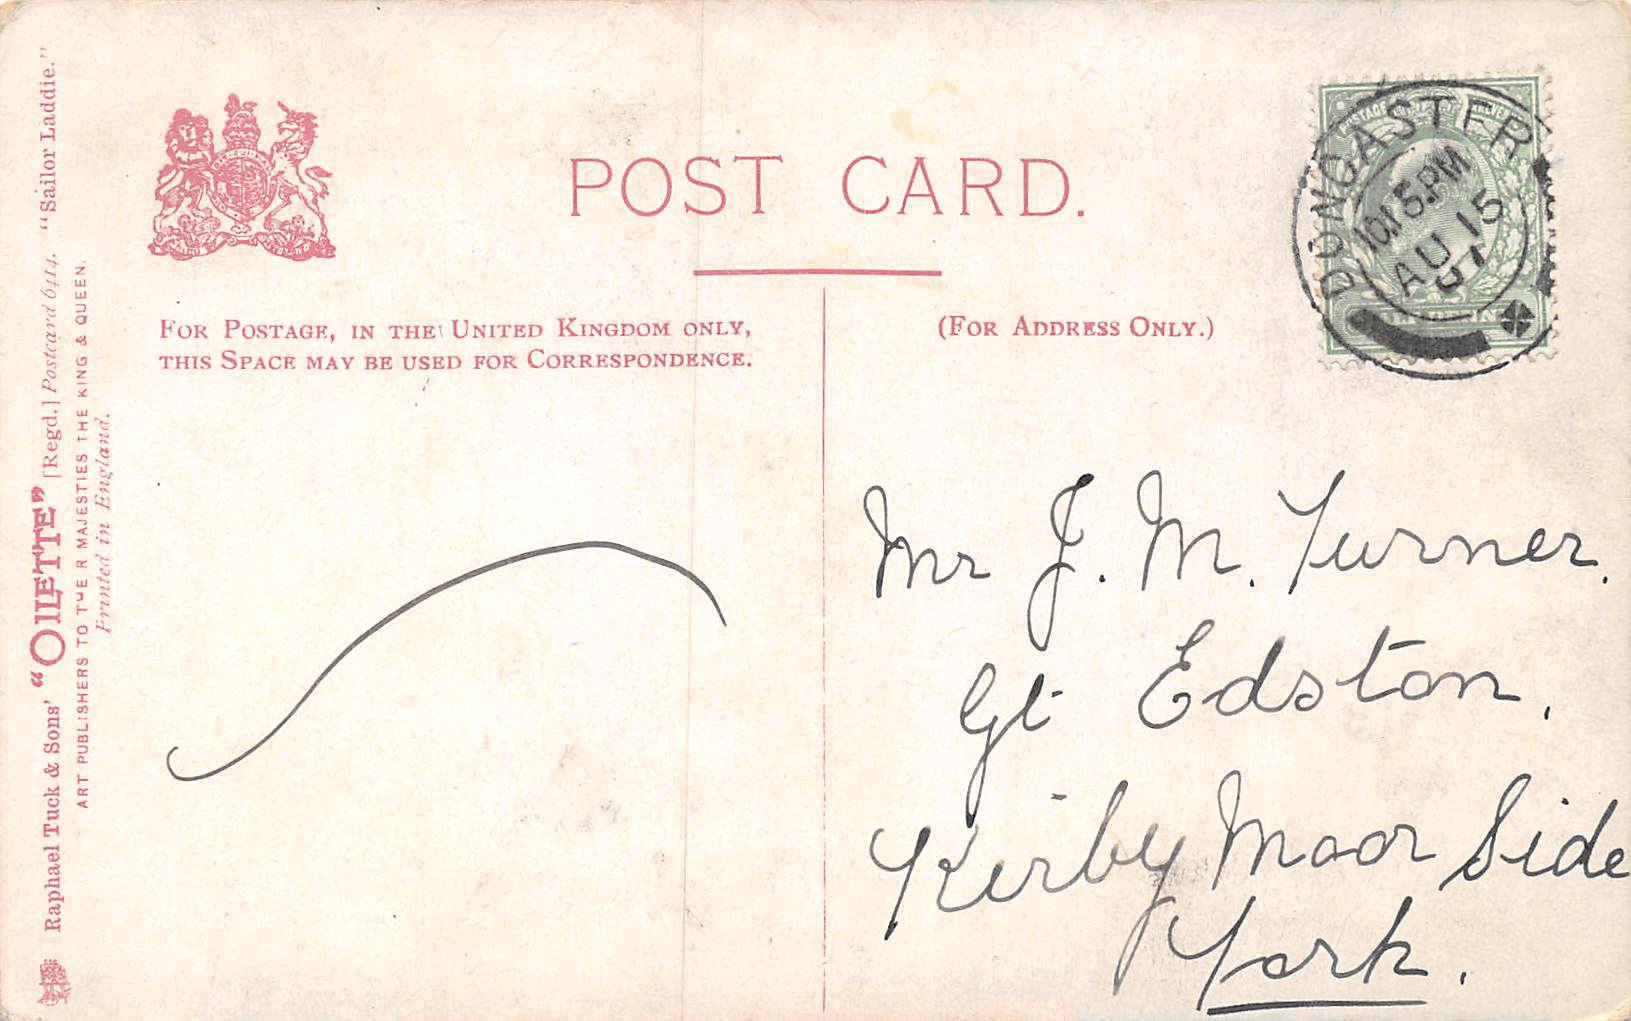 POST CARD.
FOR POSTAGE, IN THE UNITED KINGDOM ONLY,
THIS SPACE MAY BE USED FOR CORRESPONDENCE.
(FOR ADDRESS ONLY.)
DONCASTER
10.15.PM
AU 15
07
Mr J. M. Turner.
Gt Edston,
Kirby Moor Side
York.
Raphael Tuck & Sons' "OILETTE" [Regd.] Postcard 6414. "Sailor Laddie."
ART PUBLISHERS TO THEIR MAJESTIES THE KING & QUEEN.
Printed in England.